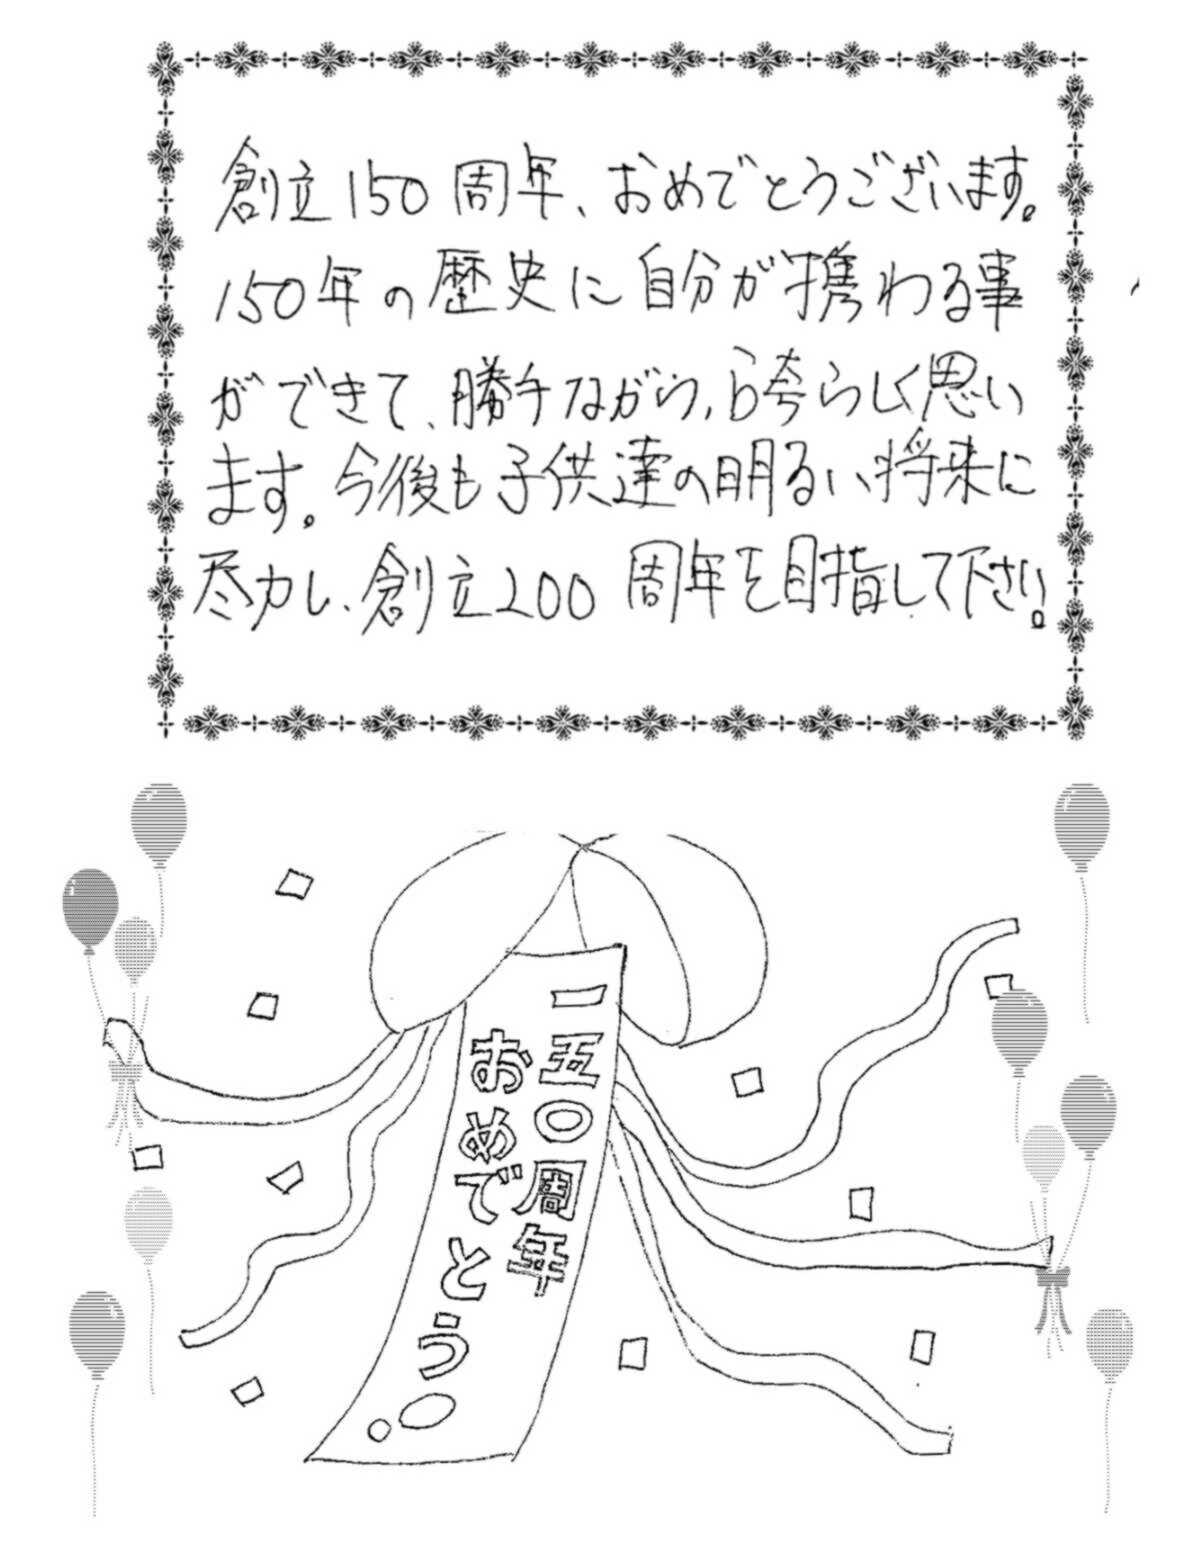 創立150周年、おめでとうございます。
150年の歴史に自分が携わる事
ができて、勝手ながら、誇らしく思い
ます。今後も子供達の明るい将来に
尽力し、創立200周年を目指して下さい。
一五〇周年
おめでとう